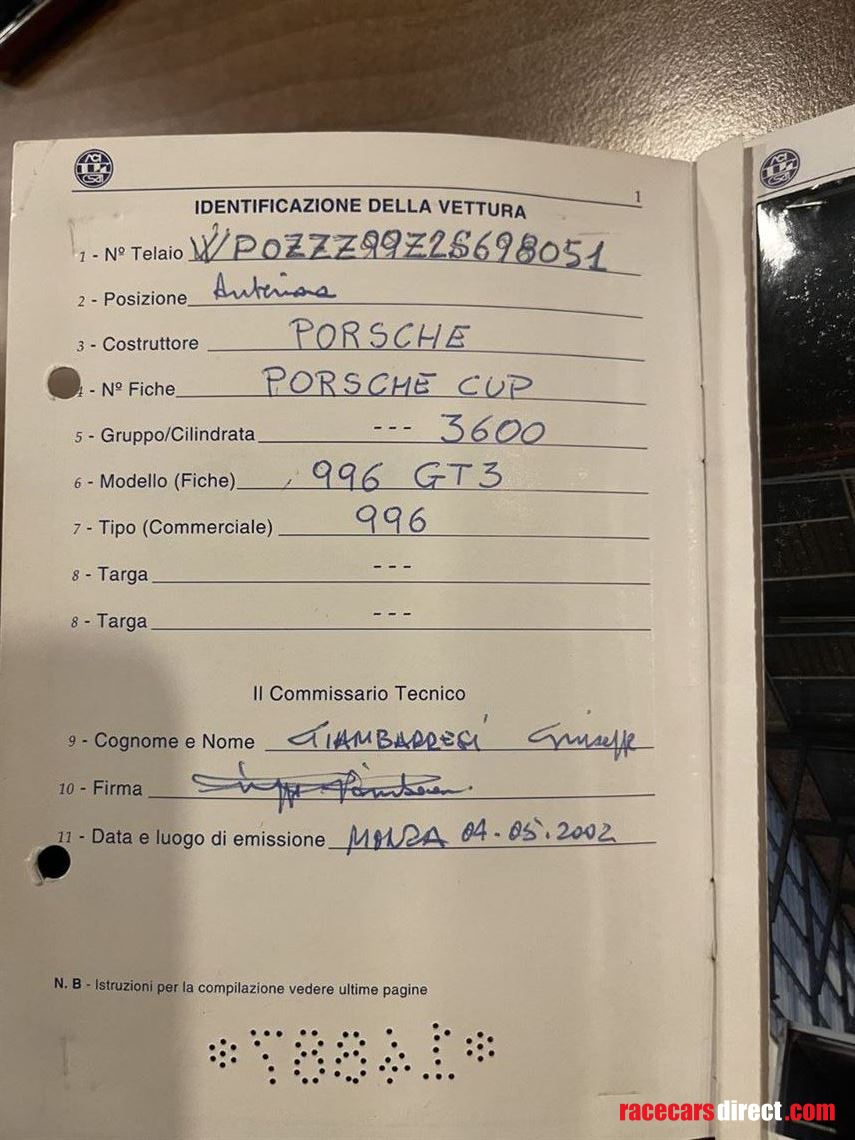 ACI
CSAI
1
IDENTIFICAZIONE DELLA VETTURA
1 - Nº Telaio WPOZZZ99Z2S698051
2 - Posizione Anteriore
3 - Costruttore PORSCHE
4 - Nº Fiche PORSCHE CUP
5 - Gruppo/Cilindrata --- 3600
6 - Modello (Fiche) 996 GT3
7 - Tipo (Commerciale) 996
8 - Targa ---
8 - Targa ---
Il Commissario Tecnico
9 - Cognome e Nome GIAMBARRESI Giuseppe
10 - Firma
11 - Data e luogo di emissione MONZA 04.05.2002
N. B - Istruzioni per la compilazione vedere ultime pagine
racecarsdirect.com